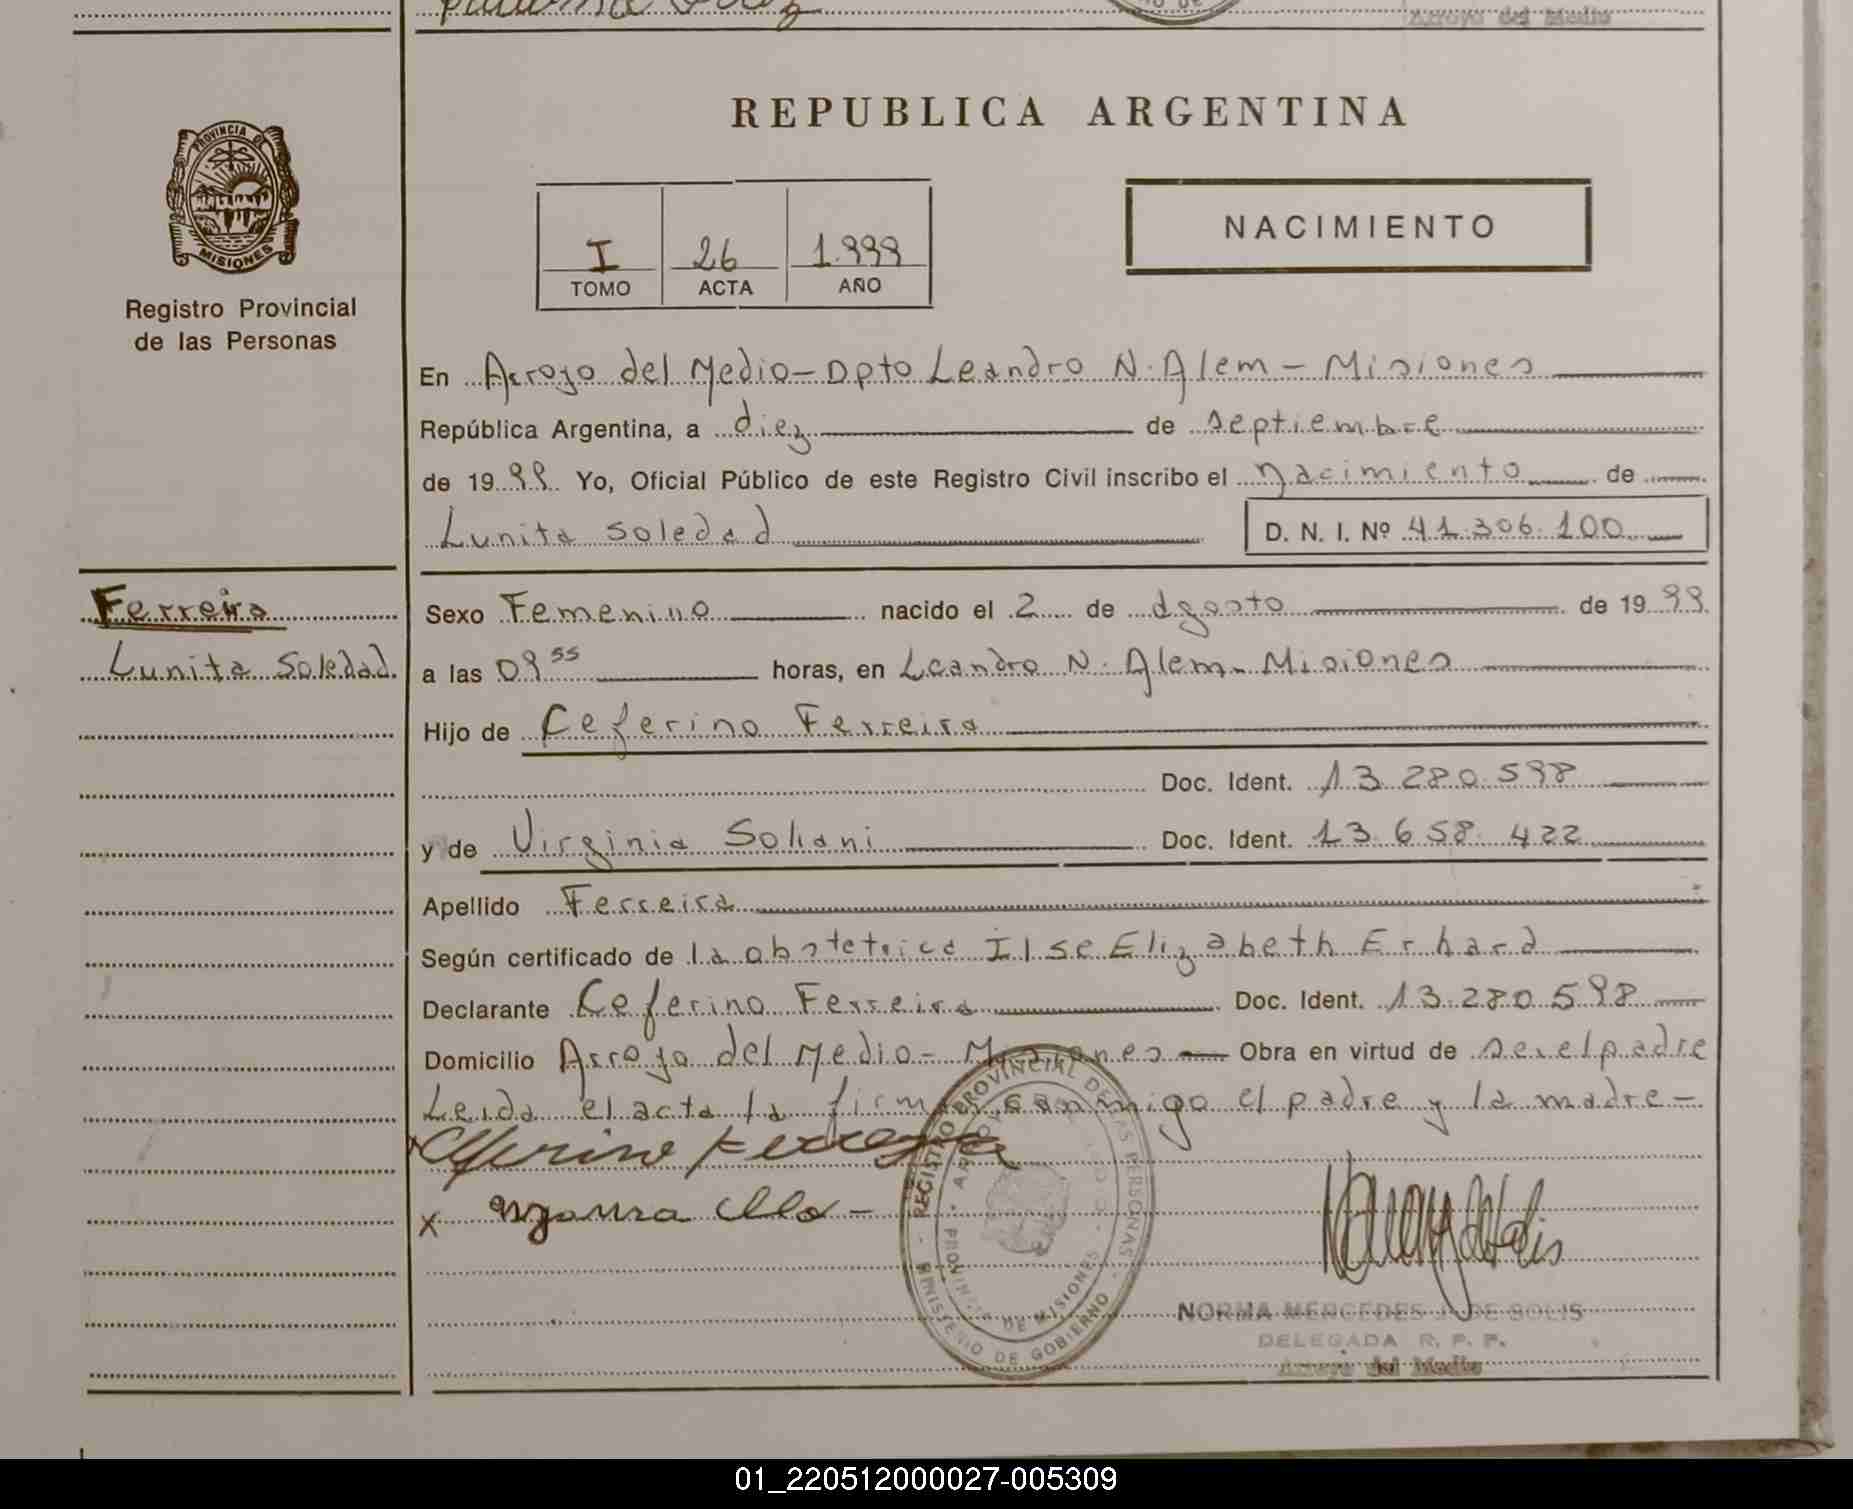 Arroyo del Medio
REPUBLICA ARGENTINA
PROVINCIA DE
MISIONES
Registro Provincial
de las Personas
I 26 1.999
TOMO ACTA AÑO
NACIMIENTO
En Arroyo del Medio - Dpto Leandro N. Alem - Misiones
República Argentina, a diez de septiembre
de 1999 Yo, Oficial Público de este Registro Civil inscribo el nacimiento de
Lunita Soledad D. N. I. Nº 41.306.100
Ferreira
Lunita Soledad
Sexo Femenino nacido el 2 de agosto de 1999
a las 09 55 horas, en Leandro N. Alem - Misiones
Hijo de Ceferino Ferreira
Doc. Ident. 13.280.598
y de Virginia Doc. Ident. 13.658.422
Apellido Ferreira
Según certificado de la obstetrica Ilse Elizabeth Erhard
Declarante Ceferino Ferreira Doc. Ident. 13.280.598
Domicilio Arroyo del Medio - Misiones Obra en virtud de ser el padre
Leida el acta la firman conmigo el padre y la madre -
X
REGISTRO PROVINCIAL DE LAS PERSONAS
PROVINCIA DE MISIONES
MINISTERIO DE GOBIERNO
NORMA MERCEDES DE SOLIS
DELEGADA R. P. P.
Arroyo del Medio
01_220512000027-005309